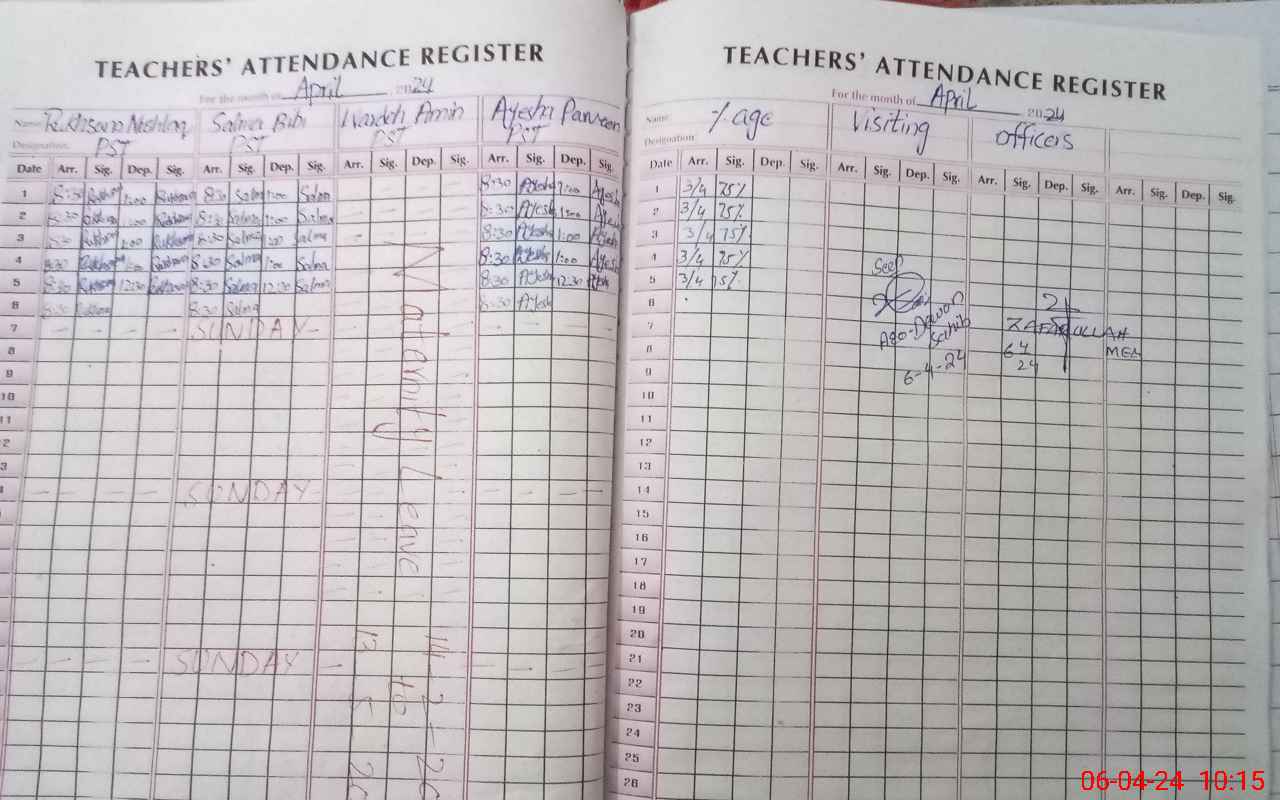 TEACHERS' ATTENDANCE REGISTER
For the month of April 2024
Name Rukhsana Mushtaq Salma Bibi Wardah Amin Ayesha Parveen
Designation: PST PST PST PST
Date Arr. Sig. Dep. Sig. Arr. Sig. Dep. Sig. Arr. Sig. Dep. Sig. Arr. Sig. Dep. Sig.
1 8:30 Rukhsana 1:00 Rukhsana 8:30 Salma 1:00 Salma 8:30 Ayesha 1:00 Ayesha
2 8:30 Rukhsana 1:00 Rukhsana 8:30 Salma 1:00 Salma 8:30 Ayesha 1:00 Ayesha
3 8:30 Rukhsana 1:00 Rukhsana 8:30 Salma 1:00 Salma 8:30 Ayesha 1:00 Ayesha
4 8:30 Rukhsana 1:00 Rukhsana 8:30 Salma 1:00 Salma 8:30 Ayesha 1:00 Ayesha
5 8:30 Rukhsana 12:30 Rukhsana 8:30 Salma 12:30 Salma 8:30 Ayesha 12:30 Ayesha
6 8:30 Rukhsana 8:30 Salma 8:30 Ayesh
7 SUNDAY
8
9
10
11
2
3
SUNDAY
SUNDAY
Maternity Leave
14-2-2
to
13 5 2
TEACHERS' ATTENDANCE REGISTER
For the month of April 2024
Name %age Visiting officers
Designation:
Date Arr. Sig. Dep. Sig. Arr. Sig. Dep. Sig. Arr. Sig. Dep. Sig. Arr. Sig. Dep. Sig.
1 3/4 75%
2 3/4 75%
3 3/4 75%
4 3/4 75%
5 3/4 75%
6
7
8
9
10
11
12
13
14
15
16
17
18
19
20
21
22
23
24
25
26
Seen
Sahib
6-4-24
ZAFARULLAH
MEA
6 4
24
06-04-24 10:15